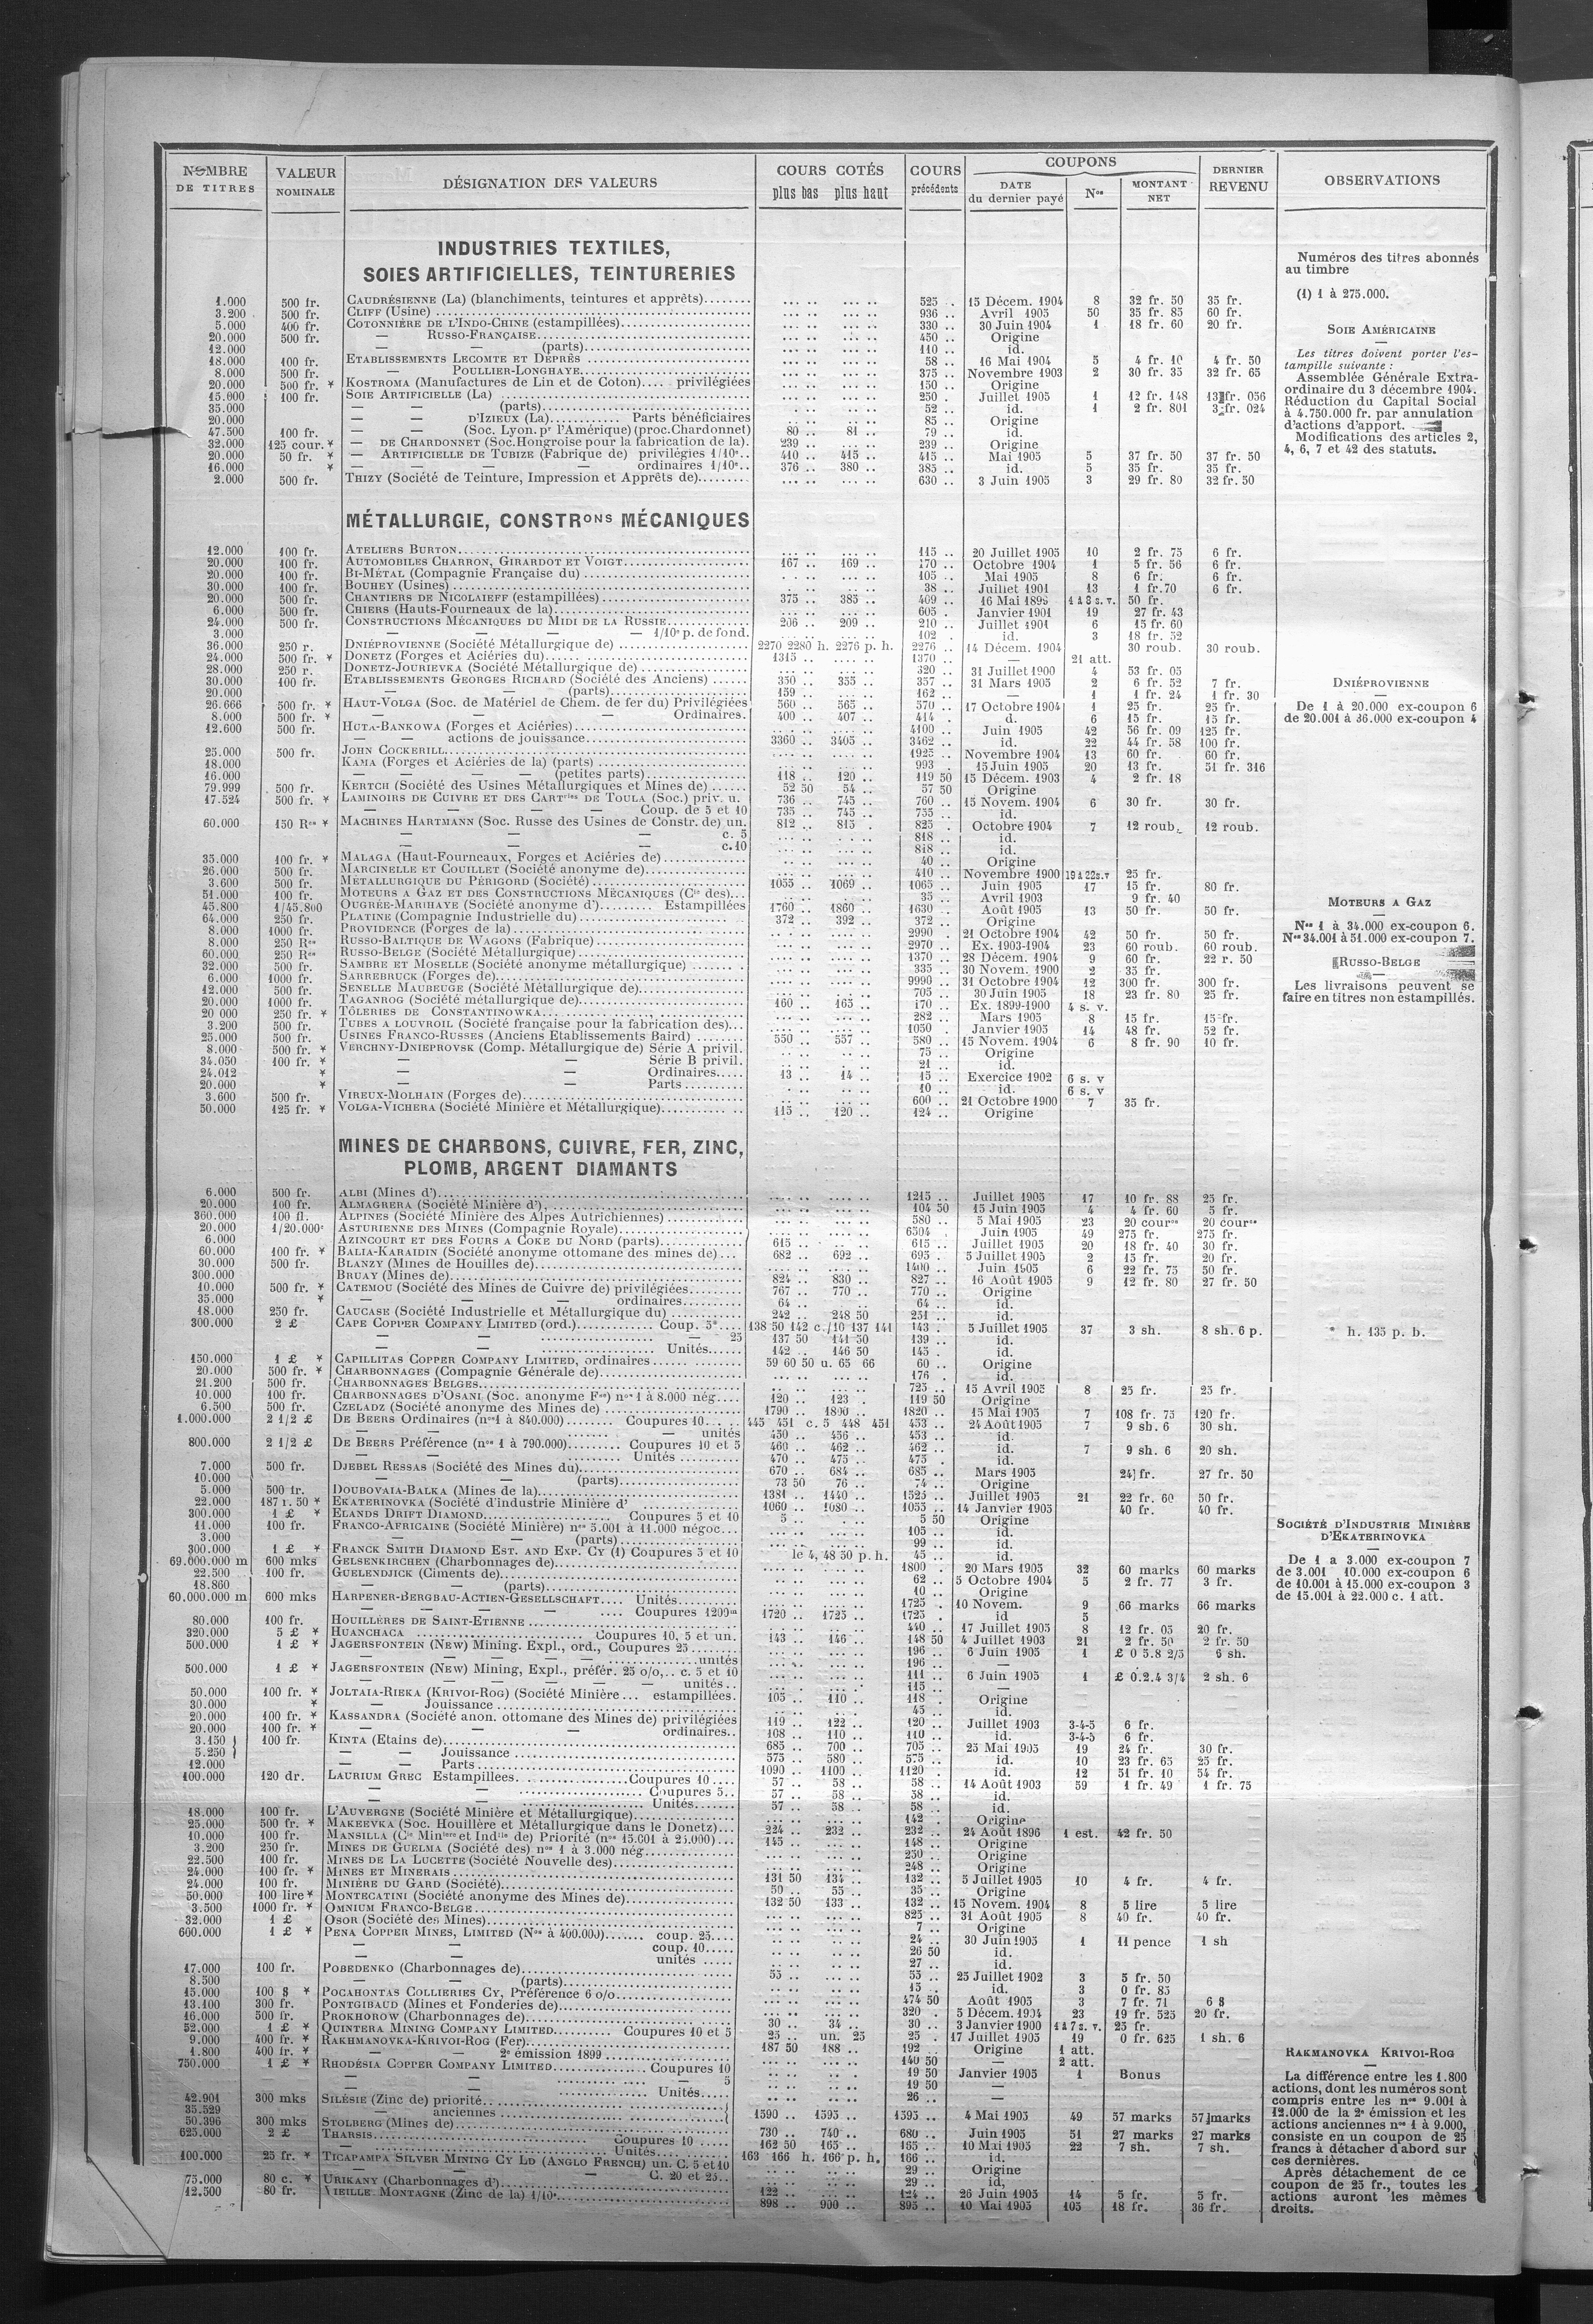 NOMBRE DE TITRES | VALEUR NOMINALE | DÉSIGNATION DES VALEURS | COURS COTÉS plus bas plus haut | COURS précédents | COUPONS DATE du dernier payé | Nos | MONTANT NET | DERNIER REVENU | OBSERVATIONS
INDUSTRIES TEXTILES,
SOIES ARTIFICIELLES, TEINTURERIES
1.000 500 fr. CAUDRÉSIENNE (La) (blanchiments, teintures et apprêts) 525 . 15 Décem. 1904 8 32 fr. 50 35 fr.
3.200 500 fr. CLIFF (Usine) 936 .. Avril 1905 50 35 fr. 85 60 fr.
5.000 400 fr. COTONNIÈRE DE L'INDO-CHINE (estampillées) 330 .. 30 Juin 1904 1 18 fr. 60 20 fr.
20.000 500 fr. — RUSSO-FRANÇAISE 450 .. Origine
12.000 — — (parts) 110 .. id.
18.000 100 fr. ETABLISSEMENTS LECOMTE ET DEPRÈS 58 .. 16 Mai 1904 5 4 fr. 10 4 fr. 50
8.000 500 fr. — POULLIER-LONGHAYE 375 .. Novembre 1903 2 30 fr. 35 32 fr. 65
20.000 500 fr. * KOSTROMA (Manufactures de Lin et de Coton) privilégiées 150 .. Origine
15.000 100 fr. SOIE ARTIFICIELLE (La) 250 . Juillet 1905 1 12 fr. 148 13 fr. 056
35.000 — — (parts) 52 .. id. 1 2 fr. 801 3 fr. 024
20.000 — — D'IZIEUX (La) Parts bénéficiaires 85 .. Origine
47.500 100 fr. — (Soc. Lyon. pr l'Amérique) (proc. Chardonnet) 80 .. 81 .. 79 .. id.
32.000 125 cour. * — DE CHARDONNET (Soc. Hongroise pour la fabrication de la). 239 .. 239 .. Origine
20.000 50 fr. * — ARTIFICIELLE DE TUBIZE (Fabrique de) privilégies 1/10e.. 410 .. 415 .. 415 .. Mai 1905 5 37 fr. 50 37 fr. 50
16.000 * — — — — ordinaires 1/10e.. 376 .. 380 .. 385 .. id. 5 35 fr. 35 fr.
2.000 500 fr. THIZY (Société de Teinture, Impression et Apprêts de) 630 .. 3 Juin 1905 3 29 fr. 80 32 fr. 50
MÉTALLURGIE, CONSTRons MÉCANIQUES
12.000 100 fr. ATELIERS BURTON 115 .. 20 Juillet 1905 10 2 fr. 75 6 fr.
20.000 100 fr. AUTOMOBILES CHARRON, GIRARDOT ET VOIGT 167 .. 169 .. 170 .. Octobre 1904 1 5 fr. 56 6 fr.
20.000 100 fr. BI-MÉTAL (Compagnie Française du) 105 .. Mai 1905 8 6 fr. 6 fr.
30.000 100 fr. BOUHEY (Usines) 38 .. Juillet 1901 13 1 fr. 70 6 fr.
20.000 500 fr. CHANTIERS DE NICOLAIEFF (estampillées) 375 .. 385 .. 409 .. 16 Mai 1899 1 à 8 s. v. 50 fr.
6.000 500 fr. CHIERS (Hauts-Fourneaux de la) 605 . Janvier 1901 19 27 fr. 43
24.000 500 fr. CONSTRUCTIONS MÉCANIQUES DU MIDI DE LA RUSSIE 206 .. 209 .. 210 .. Juillet 1901 6 15 fr. 60
3.000 — — — — 1/10e p. de fond. 102 . id. 3 18 fr. 52
36.000 250 r. DNIÉPROVIENNE (Société Métallurgique de) 2270 2280 h. 2276 p. h. 2276 .. 14 Décem. 1904 30 roub. 30 roub.
24.000 500 fr. * DONETZ (Forges et Aciéries du) 1315 .. 1370 .. — 21 att.
28.000 250 r. DONETZ-JOURIEVKA (Société Métallurgique de) 320 .. 31 Juillet 1900 4 53 fr. 05
30.000 100 fr. ETABLISSEMENTS GEORGES RICHARD (Société des Anciens) 350 .. 355 .. 357 .. 31 Mars 1905 2 6 fr. 52 7 fr.
20.000 — — (parts) 159 .. 162 .. — 1 1 fr. 24 1 fr. 30
26.666 500 fr. * HAUT-VOLGA (Soc. de Matériel de Chem. de fer du) Privilégiées 560 .. 565 .. 570 .. 17 Octobre 1904 1 25 fr. 25 fr.
8.000 500 fr. * — — — Ordinaires. 400 .. 407 .. 414 . d. 6 15 fr. 15 fr.
12.600 500 fr. HUTA-BANKOWA (Forges et Aciéries) 4100 .. Juin 1905 42 56 fr. 09 125 fr.
— — actions de jouissance 3360 .. 3405 .. 3462 .. id. 22 44 fr. 58 100 fr.
25.000 500 fr. JOHN COCKERILL 1925 .. Novembre 1904 13 60 fr. 60 fr.
18.000 KAMA (Forges et Aciéries de la) (parts) 993 . 15 Juin 1905 20 13 fr. 51 fr. 316
16.000 — — — — (petites parts) 118 .. 120 .. 119 50 15 Décem. 1903 4 2 fr. 18
79.999 500 fr. KERTCH (Société des Usines Métallurgiques et Mines de) 52 50 54 .. 57 50 Origine
17.524 500 fr. * LAMINOIRS DE CUIVRE ET DES CARTries DE TOULA (Soc.) priv. u. 736 .. 745 .. 760 .. 15 Novem. 1904 6 30 fr. 30 fr.
— — — Coup. de 5 et 10 735 .. 745 .. 755 .. id.
60.000 150 Res * MACHINES HARTMANN (Soc. Russe des Usines de Constr. de) un. 812 .. 815 . 825 . Octobre 1904 7 12 roub. 12 roub.
— — — c. 5 818 .. id.
— — — c. 10 818 .. id.
35.000 100 fr. * MALAGA (Haut-Fourneaux, Forges et Aciéries de) 40 .. Origine
26.000 500 fr. MARCINELLE ET COUILLET (Société anonyme de) 410 .. Novembre 1900 19 à 22 s. v 25 fr.
3.600 500 fr. MÉTALLURGIQUE DU PÉRIGORD (Société) 1055 .. 1069 .. 1065 .. Juin 1905 17 15 fr. 80 fr.
51.000 100 fr. MOTEURS A GAZ ET DES CONSTRUCTIONS MÉCANIQUES (Cie des) 35 .. Avril 1903 9 fr. 40
45.800 1/45.800 OUGRÉE-MARIHAYE (Société anonyme d') Estampillées 1760 .. 1860 .. 1630 .. Août 1905 13 50 fr. 50 fr.
64.000 250 fr. PLATINE (Compagnie Industrielle du) 372 .. 392 .. 372 .. Origine
8.000 1000 fr. PROVIDENCE (Forges de la) 2990 .. 21 Octobre 1904 42 50 fr. 50 fr.
8.000 250 Res RUSSO-BALTIQUE DE WAGONS (Fabrique) 2970 .. Ex. 1903-1904 23 60 roub. 60 roub.
60.000 250 Res RUSSO-BELGE (Société Métallurgique) 1370 .. 28 Décem. 1904 9 60 fr. 22 r. 50
32.000 500 fr. SAMBRE ET MOSELLE (Société anonyme métallurgique) 335 .. 30 Novem. 1900 2 35 fr.
6.000 1000 fr. SARREBRUCK (Forges de) 9990 .. 31 Octobre 1904 12 300 fr. 300 fr.
12.000 500 fr. SENELLE MAUBEUGE (Société Métallurgique de) 705 .. 30 Juin 1905 18 23 fr. 80 25 fr.
20.000 1000 fr. TAGANROG (Société métallurgique de) 160 .. 165 .. 170 .. Ex. 1899-1900 4 s. v.
20 000 250 fr. * TÔLERIES DE CONSTANTINOWKA 282 .. Mars 1905 8 15 fr. 15 fr.
3.200 500 fr. TUBES A LOUVROIL (Société française pour la fabrication des) 1050 .. Janvier 1905 14 48 fr. 52 fr.
25.000 500 fr. USINES FRANCO-RUSSES (Anciens Etablissements Baird) 550 .. 557 .. 580 .. 15 Novem. 1904 6 8 fr. 90 10 fr.
8.000 500 fr. * VERCHNY-DNIEPROVSK (Comp. Métallurgique de) Série A privil. 75 .. Origine
34.050 100 fr. * — — Série B privil. 21 .. id.
24.012 * — — Ordinaires 13 .. 14 .. 15 .. Exercice 1902 6 s. v
20.000 * — — Parts 10 .. id. 6 s. v
3.600 500 fr. VIREUX-MOLHAIN (Forges de) 600 .. 21 Octobre 1900 7 35 fr.
50.000 125 fr. * VOLGA-VICHERA (Société Minière et Métallurgique) 115 .. 120 .. 124 .. Origine
MINES DE CHARBONS, CUIVRE, FER, ZINC,
PLOMB, ARGENT DIAMANTS
6.000 500 fr. ALBI (Mines d') 1215 .. Juillet 1905 17 10 fr. 88 25 fr.
20.000 100 fr. ALMAGRERA (Société Minière d') 104 50 15 Juin 1905 4 4 fr. 60 5 fr.
360.000 100 fl. ALPINES (Société Minière des Alpes Autrichiennes) 580 .. 5 Mai 1905 23 20 coures 20 coures
20.000 1/20.000e ASTURIENNE DES MINES (Compagnie Royale) 6504 . Juin 1905 49 275 fr. 275 fr.
6.000 AZINCOURT ET DES FOURS A COKE DU NORD (parts) 615 .. 615 .. Juillet 1905 20 18 fr. 40 30 fr.
60.000 100 fr. * BALIA-KARAIDIN (Société anonyme ottomane des mines de) 682 .. 692 .. 695 . 5 Juillet 1905 2 15 fr. 20 fr.
30.000 500 fr. BLANZY (Mines de Houilles de) 1400 .. Juin 1905 6 22 fr. 75 50 fr.
300.000 BRUAY (Mines de) 824 .. 830 .. 827 .. 16 Août 1905 9 12 fr. 80 27 fr. 50
10.000 500 fr. * CATEMOU (Société des Mines de Cuivre de) privilégiées 767 .. 770 .. 770 .. Origine
35.000 * — — ordinaires 64 .. 64 .. id.
18.000 250 fr. CAUCASE (Société Industrielle et Métallurgique du) 242 .. 248 50 251 .. id.
300.000 2 £ CAPE COPPER COMPANY LIMITED (ord.) Coup. 5* 138 50 142 c./10 137 141 143 . 5 Juillet 1905 37 3 sh. 8 sh. 6 p.
— — — 25 137 50 141 50 139 .. id.
— — Unités 142 .. 146 50 145 .. id.
150.000 1 £ * CAPILLITAS COPPER COMPANY LIMITED, ordinaires 59 60 50 u. 65 66 60 .. Origine
20.000 500 fr. * CHARBONNAGES (Compagnie Générale de) 176 . id.
21.200 500 fr. CHARBONNAGES BELGES 725 .. 15 Avril 1905 8 25 fr. 25 fr.
10.000 100 fr. CHARBONNAGES D'OSANI (Soc. anonyme Fse) nos 1 à 8.000 nég. 120 .. 123 . 119 50 Origine
6.500 500 fr. CZELADZ (Société anonyme des Mines de) 1790 .. 1800 .. 1820 .. 15 Mai 1905 7 108 fr. 75 120 fr.
1.000.000 2 1/2 £ DE BEERS Ordinaires (nos 1 à 840.000) Coupures 10 445 451 c. 5 448 451 453 .. 24 Août 1905 7 9 sh. 6 30 sh.
— — — unités 450 .. 456 .. 453 .. id.
800.000 2 1/2 £ DE BEERS Préférence (nos 1 à 790.000) Coupures 10 et 5 460 .. 462 .. 462 .. id. 7 9 sh. 6 20 sh.
— — Unités 470 .. 475 .. 475 . id.
7.000 500 fr. DJEBEL RESSAS (Société des Mines du) 670 .. 684 .. 685 .. Mars 1905 24 fr. 27 fr. 50
10.000 — — (parts) 73 50 76 .. 74 .. Origine
5.000 500 fr. DOUBOVAIA-BALKA (Mines de la) 1381 .. 1440 .. 1525 .. Juillet 1905 21 22 fr. 60 50 fr.
22.000 187 r. 50 * EKATERINOVKA (Société d'industrie Minière d' 1060 .. 1080 .. 1055 .. 14 Janvier 1905 40 fr. 40 fr.
300.000 1 £ * ELANDS DRIFT DIAMOND Coupures 5 et 10 5 .. 5 50 Origine
11.000 100 fr. FRANCO-AFRICAINE (Société Minière) nos 5.001 à 11.000 négoc. 105 .. id.
3.000 — — (parts) 99 .. id.
300.000 1 £ * FRANCK SMITH DIAMOND EST. AND EXP. CY (1) Coupures 5 et 10 le 4, 48 50 p. h. 45 .. id.
69.000.000 m 600 mks GELSENKIRCHEN (Charbonnages de) 1800 . 20 Mars 1905 32 60 marks 60 marks
22.500 100 fr. GUELENDJICK (Ciments de) 62 .. 5 Octobre 1904 5 2 fr. 77 3 fr.
18.860 — — (parts) 10 .. Origine
60.000.000 m 600 mks HARPENER-BERGBAU-ACTIEN-GESELLSCHAFT Unités 1725 . 10 Novem. 9 66 marks 66 marks
— — — Coupures 1200m 1720 .. 1725 .. 1725 . id 5
80.000 100 fr. HOUILLÈRES DE SAINT-ETIENNE 440 .. 17 Juillet 1905 8 12 fr. 05 20 fr.
320.000 5 £ * HUANCHACA Coupures 10, 5 et un. 143 .. 146 .. 148 50 4 Juillet 1903 21 2 fr. 50 2 fr. 50
500.000 1 £ * JAGERSFONTEIN (New) Mining. Expl., ord., Coupures 25 196 .. 6 Juin 1905 1 £ 0 5.8 2/5 6 sh.
— — — — unités 196 .. —
500.000 1 £ * JAGERSFONTEIN (New) Mining, Expl., préfér. 25 o/o,.. c. 5 et 10 111 .. 6 Juin 1905 1 £ 0.2.4 3/4 2 sh. 6
— — — — unités 115 .. —
50.000 100 fr. * JOLTAIA-RIEKA (KRIVOI-ROG) (Société Minière estampillées. 105 .. 110 .. 118 . Origine
30.000 * — Jouissance 45 .. id.
20.000 100 fr. * KASSANDRA (Société anon. ottomane des Mines de) privilégiées 119 .. 122 .. 120 .. Juillet 1903 3-4-5 6 fr.
20.000 100 fr. * — — — ordinaires 108 .. 110 .. 110 .. id. 3-4-5 6 fr.
3.150 } 100 fr. KINTA (Etains de) 685 .. 700 .. 705 .. 25 Mai 1905 19 24 fr. 30 fr.
5.250 } — — Jouissance 575 .. 580 .. 575 .. id. 10 23 fr. 65 25 fr.
12.000 — — Parts 1090 .. 1100 .. 1120 . id. 12 51 fr. 10 54 fr.
100.000 120 dr. LAURIUM GREC Estampillees. Coupures 10 57 .. 58 .. 58 .. 14 Août 1903 59 1 fr. 49 1 fr. 75
— — Coupures 5 57 .. 58 .. 58 .. id.
— — Unités 57 .. 58 .. 58 .. id.
18.000 100 fr. L'AUVERGNE (Société Minière et Métallurgique) 142 .. Origine
25.000 500 fr. * MAKEEVKA (Soc. Houillère et Métallurgique dans le Donetz) 224 .. 232 .. 232 . 24 Août 1896 1 est. 42 fr. 50
10.000 100 fr. MANSILLA (Cie Minière et Indlle de) Priorité (nos 15.001 à 25.000) 145 .. 148 .. Origine
3.200 250 fr. MINES DE GUELMA (Société des) nos 1 à 3.000 nég. 250 .. Origine
22.500 100 fr. MINES DE LA LUCETTE (Société Nouvelle des) 248 .. Origine
24.000 100 fr. * MINES ET MINERAIS 131 50 134 .. 132 .. 5 Juillet 1905 10 4 fr. 4 fr.
24.000 100 fr. MINIÈRE DU GARD (Société) 50 .. 55 .. 35 .. Origine
50.000 100 lire * MONTECATINI (Société anonyme des Mines de) 132 50 133 .. 132 .. 15 Novem. 1904 8 5 lire 5 lire
3.500 1000 fr. * OMNIUM FRANCO-BELGE 825 .. 31 Août 1905 8 40 fr. 40 fr.
32.000 1 £ OSOR (Société des Mines) 7 .. Origine
600.000 1 £ * PENA COPPER MINES, LIMITED (Nos à 400.000) coup. 25 24 .. 30 Juin 1905 1 11 pence 1 sh
— — coup. 10 26 50 id.
— — unités 27 .. id.
17.000 100 fr. POBEDENKO (Charbonnages de) 55 .. 55 .. 25 Juillet 1902 3 5 fr. 50
8.500 — — (parts) 15 .. id. 3 0 fr. 85
15.000 100 $ * POCAHONTAS COLLIERIES CY, Préférence 6 o/o 474 50 Août 1905 3 7 fr. 71 6 $
13.100 300 fr. PONTGIBAUD (Mines et Fonderies de) 320 . 5 Décem. 1904 23 19 fr. 525 20 fr.
16.000 500 fr. PROKHOROW (Charbonnages de) 30 .. 34 .. 30 .. 3 Janvier 1900 1 à 7 s. v. 25 fr.
52.000 1 £ * QUINTERA MINING COMPANY LIMITED Coupures 10 et 5 25 .. un. 25 25 . 17 Juillet 1905 19 0 fr. 625 1 sh. 6
9.000 400 fr. * RAKHMANOVKA-KRIVOI-ROG (Fer) 187 50 188 .. 192 .. Origine 1 att.
1.800 400 fr. * — — 2e émission 1899 140 50 — 2 att.
750.000 1 £ * RHODÉSIA COPPER COMPANY LIMITED Coupures 10 19 50 Janvier 1905 1 Bonus
— — — 5 19 50 —
— — Unités 26 .. —
42.901 300 mks SILÉSIE (Zinc de) priorité
35.529 — anciennes 1590 .. 1595 .. 1595 .. 4 Mai 1905 49 57 marks 57 marks
50.396 300 mks STOLBERG (Mines de) 730 .. 740 .. 680 .. Juin 1905 51 27 marks 27 marks
625.000 2 £ THARSIS Coupures 10 162 50 165 .. 165 .. 10 Mai 1905 22 7 sh. 7 sh.
— Unités 163 166 h. 166 p. h. 166 .. id.
100.000 25 fr. * TICAPAMPA SILVER MINING CY LD (ANGLO FRENCH) un. C. 5 et 10 29 .. Origine
— — C. 20 et 25 29 .. id.
75.000 80 c. * URIKANY (Charbonnages d') 122 .. 124 .. 26 Juin 1905 14 5 fr. 5 fr.
12.500 80 fr. VIEILLE MONTAGNE (Zinc de la) 1/10e 898 .. 900 .. 895 .. 10 Mai 1905 105 18 fr. 36 fr.
Numéros des titres abonnés
au timbre
(1) 1 à 275.000.
SOIE AMÉRICAINE
Les titres doivent porter l'es-
tampille suivante :
Assemblée Générale Extra-
ordinaire du 3 décembre 1904.
Réduction du Capital Social
à 4.750.000 fr. par annulation
d'actions d'apport.
Modifications des articles 2,
4, 6, 7 et 42 des statuts.
DNIÉPROVIENNE
De 1 à 20.000 ex-coupon 6
de 20.001 à 36.000 ex-coupon 4
MOTEURS A GAZ
Nos 1 à 34.000 ex-coupon 6.
Nos 34.001 à 51.000 ex-coupon 7.
RUSSO-BELGE
Les livraisons peuvent se
faire en titres non estampillés.
* h. 135 p. b.
SOCIÉTÉ D'INDUSTRIE MINIÈRE
D'EKATERINOVKA
De 1 a 3.000 ex-coupon 7
de 3.001 10.000 ex-coupon 6
de 10.001 à 15.000 ex-coupon 3
de 15.001 à 22.000 c. 1 att.
RAKMANOVKA KRIVOI-ROG
La différence entre les 1.800
actions, dont les numéros sont
compris entre les nos 9.001 à
12.000 de la 2e émission et les
actions anciennes nos 1 à 9.000,
consiste en un coupon de 25
francs à détacher d'abord sur
ces dernières.
Après détachement de ce
coupon de 25 fr., toutes les
actions auront les mêmes
droits.